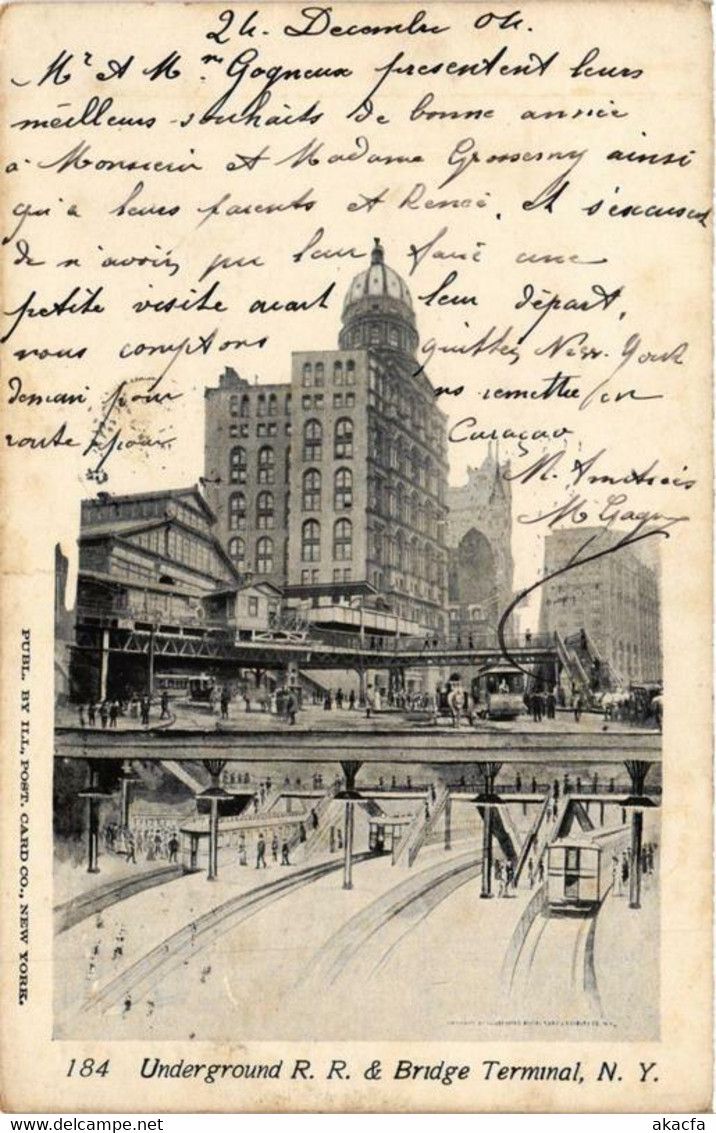 24. Decembre 04.
Mr et Mme Gogneux presentent leurs
meilleurs souhaits de bonne année
à Monsieur et Madame Grosserny ainsi
qu'à leurs parents et Renée, et s'excusent
de n'avoir pu leur faire une
petite visite avant leur départ,
nous comptons quitter New-York
demain pour ns remettre en
route pour Curaçao
M.
M
PUBL. BY ILL. POST. CARD CO., NEW YORK.
184 Underground R. R. & Bridge Terminal, N. Y.
www.delcampe.net
akacfa